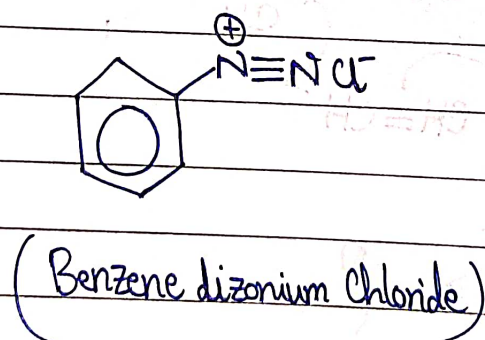 ⊕
N≡N Cl⁻
(Benzene dizonium Chloride)